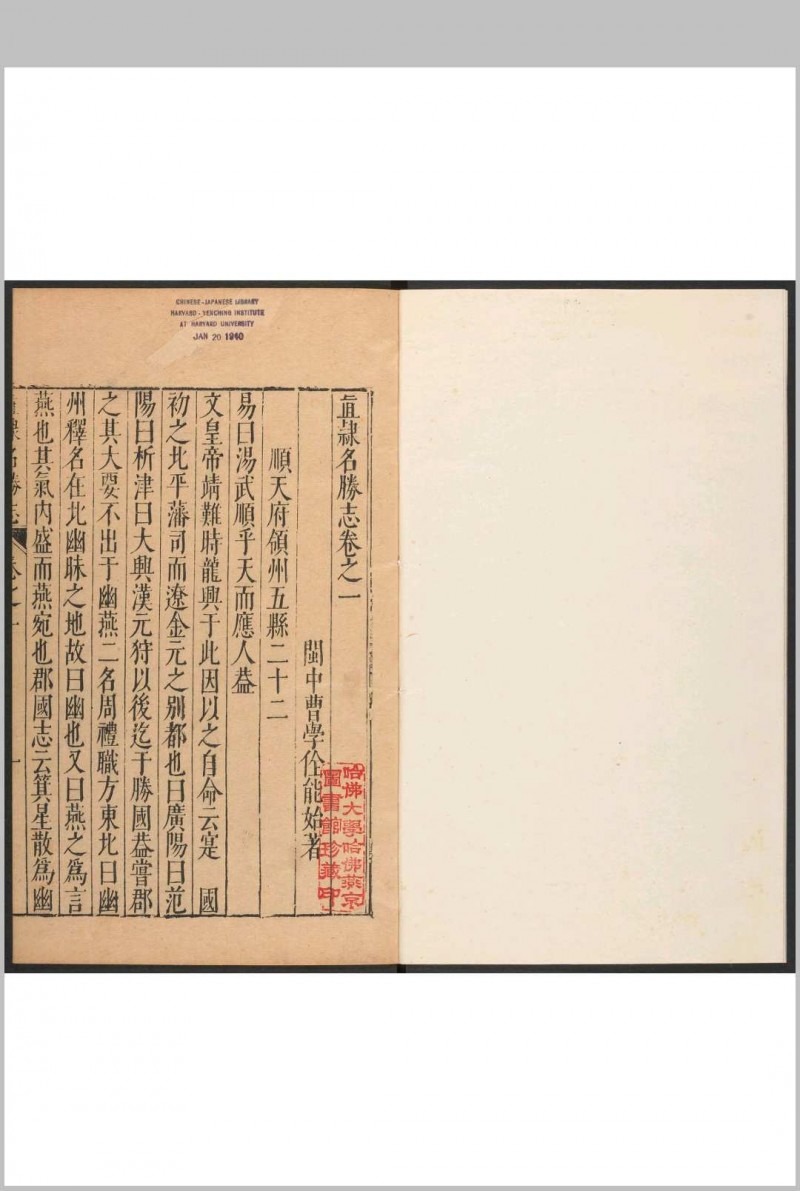 CHINESE-JAPANESE LIBRARY
HARVARD-YENCHING INSTITUTE
AT HARVARD UNIVERSITY
JAN 20 1940
直隷名勝志卷之一
閩中曹學佺能始著
哈佛大學哈佛燕京
圖書館珍藏印
順天府領州五縣二十二
易曰湯武順乎天而應人葢
文皇帝靖難時龍興于此因以之自命云寔 國
初之北平藩司而遼金元之别都也曰廣陽曰范
陽曰析津曰大興漢元狩以後迄于勝國葢嘗郡
之其大要不出于幽燕二名周禮職方東北曰幽
州釋名在北幽昧之地故曰幽也又曰燕之爲言
燕也其氣内盛而燕宛也郡國志云箕星散爲幽
名勝志 卷之一 一